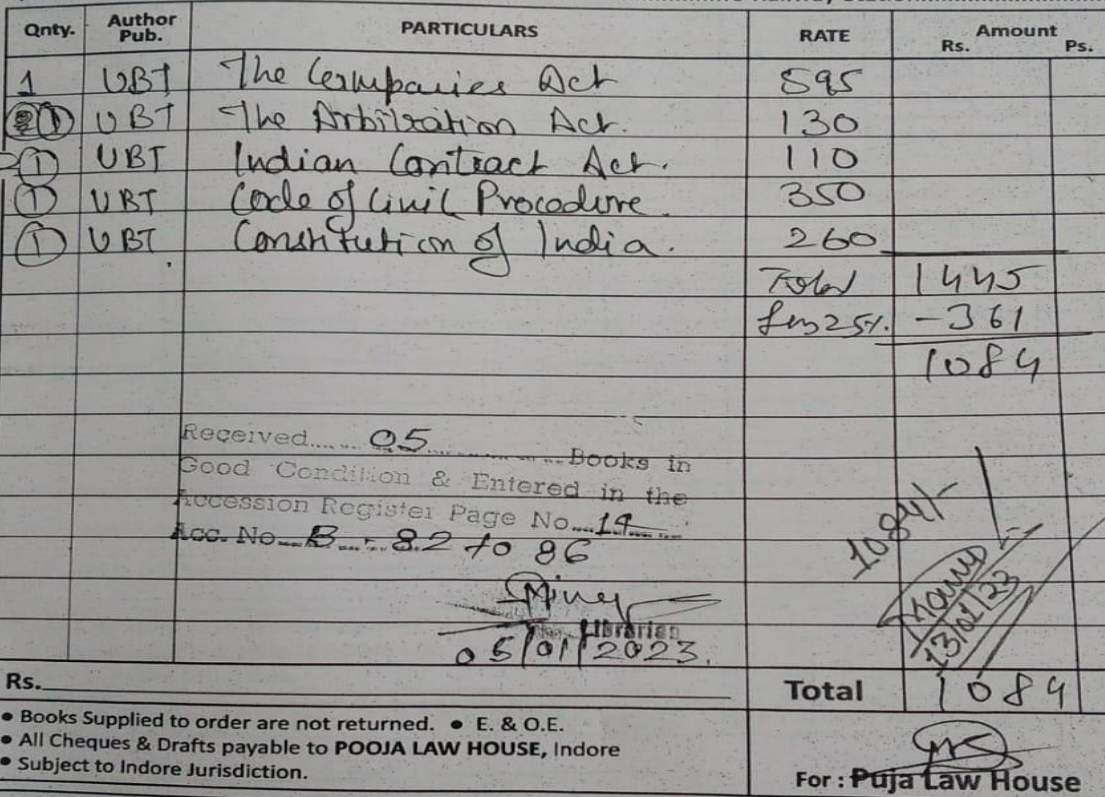 Qnty. Author Pub. PARTICULARS RATE Amount Rs. Ps.
1 UBT The Companies Act 595
1 UBT The Arbitration Act. 130
1 UBT Indian Contract Act. 110
1 UBT Code of Civil Procedure. 350
1 UBT Constitution of India. 260
Total 1445
Less 25%. -361
1084
Received....... 05 ............Books in
Good Condition & Entered in the
Accession Register Page No....14......
Acc. No...B...- 82 to 86
Librarian
05/01/2023.
1084/-
13/01/23
Rs.
Total 1084
• Books Supplied to order are not returned. • E. & O.E.
• All Cheques & Drafts payable to POOJA LAW HOUSE, Indore
• Subject to Indore Jurisdiction.
For : Puja Law House